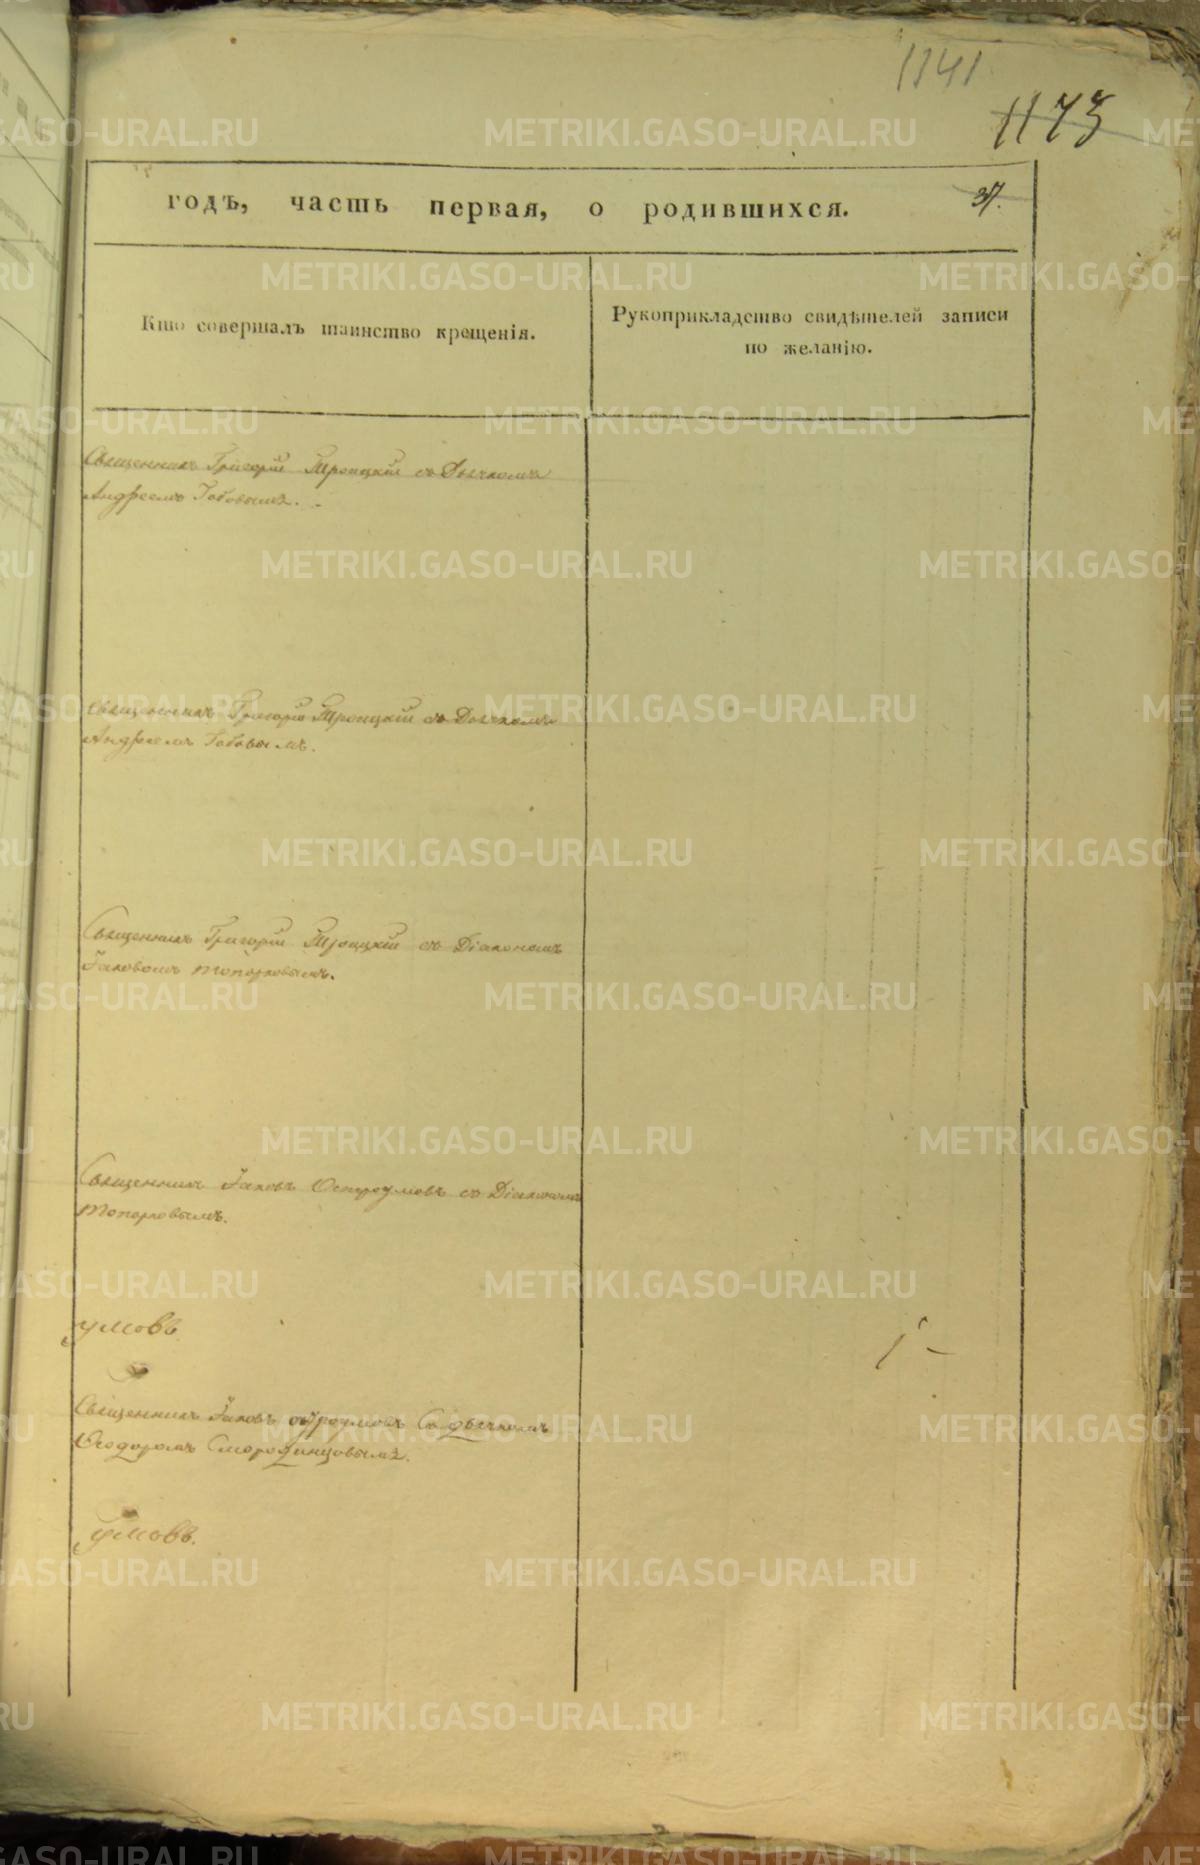 1141
1173
годъ, часть первая, о родившихся. 37.
Кто совершалъ таинство крещенія.
Рукоприкладство свидѣтелей записи
по желанію.
Священникъ Григорій Троицкій съ Дьячкомъ
Андреемъ Бобовымъ.
Священникъ Григорій Троицкій съ Дьячкомъ
Андреемъ Бобовымъ.
Священникъ Григорій Троицкій съ Діакономъ
Іаковомъ Топорковымъ.
Священникъ Іаковъ Остроумовъ съ Діакономъ
Топорковымъ.
умовъ
Священникъ Іаковъ остроумовъ Съ дьячкомъ
Ѳеодоромъ Смородинцовымъ.
умовъ.
METRIKI.GASO-URAL.RU